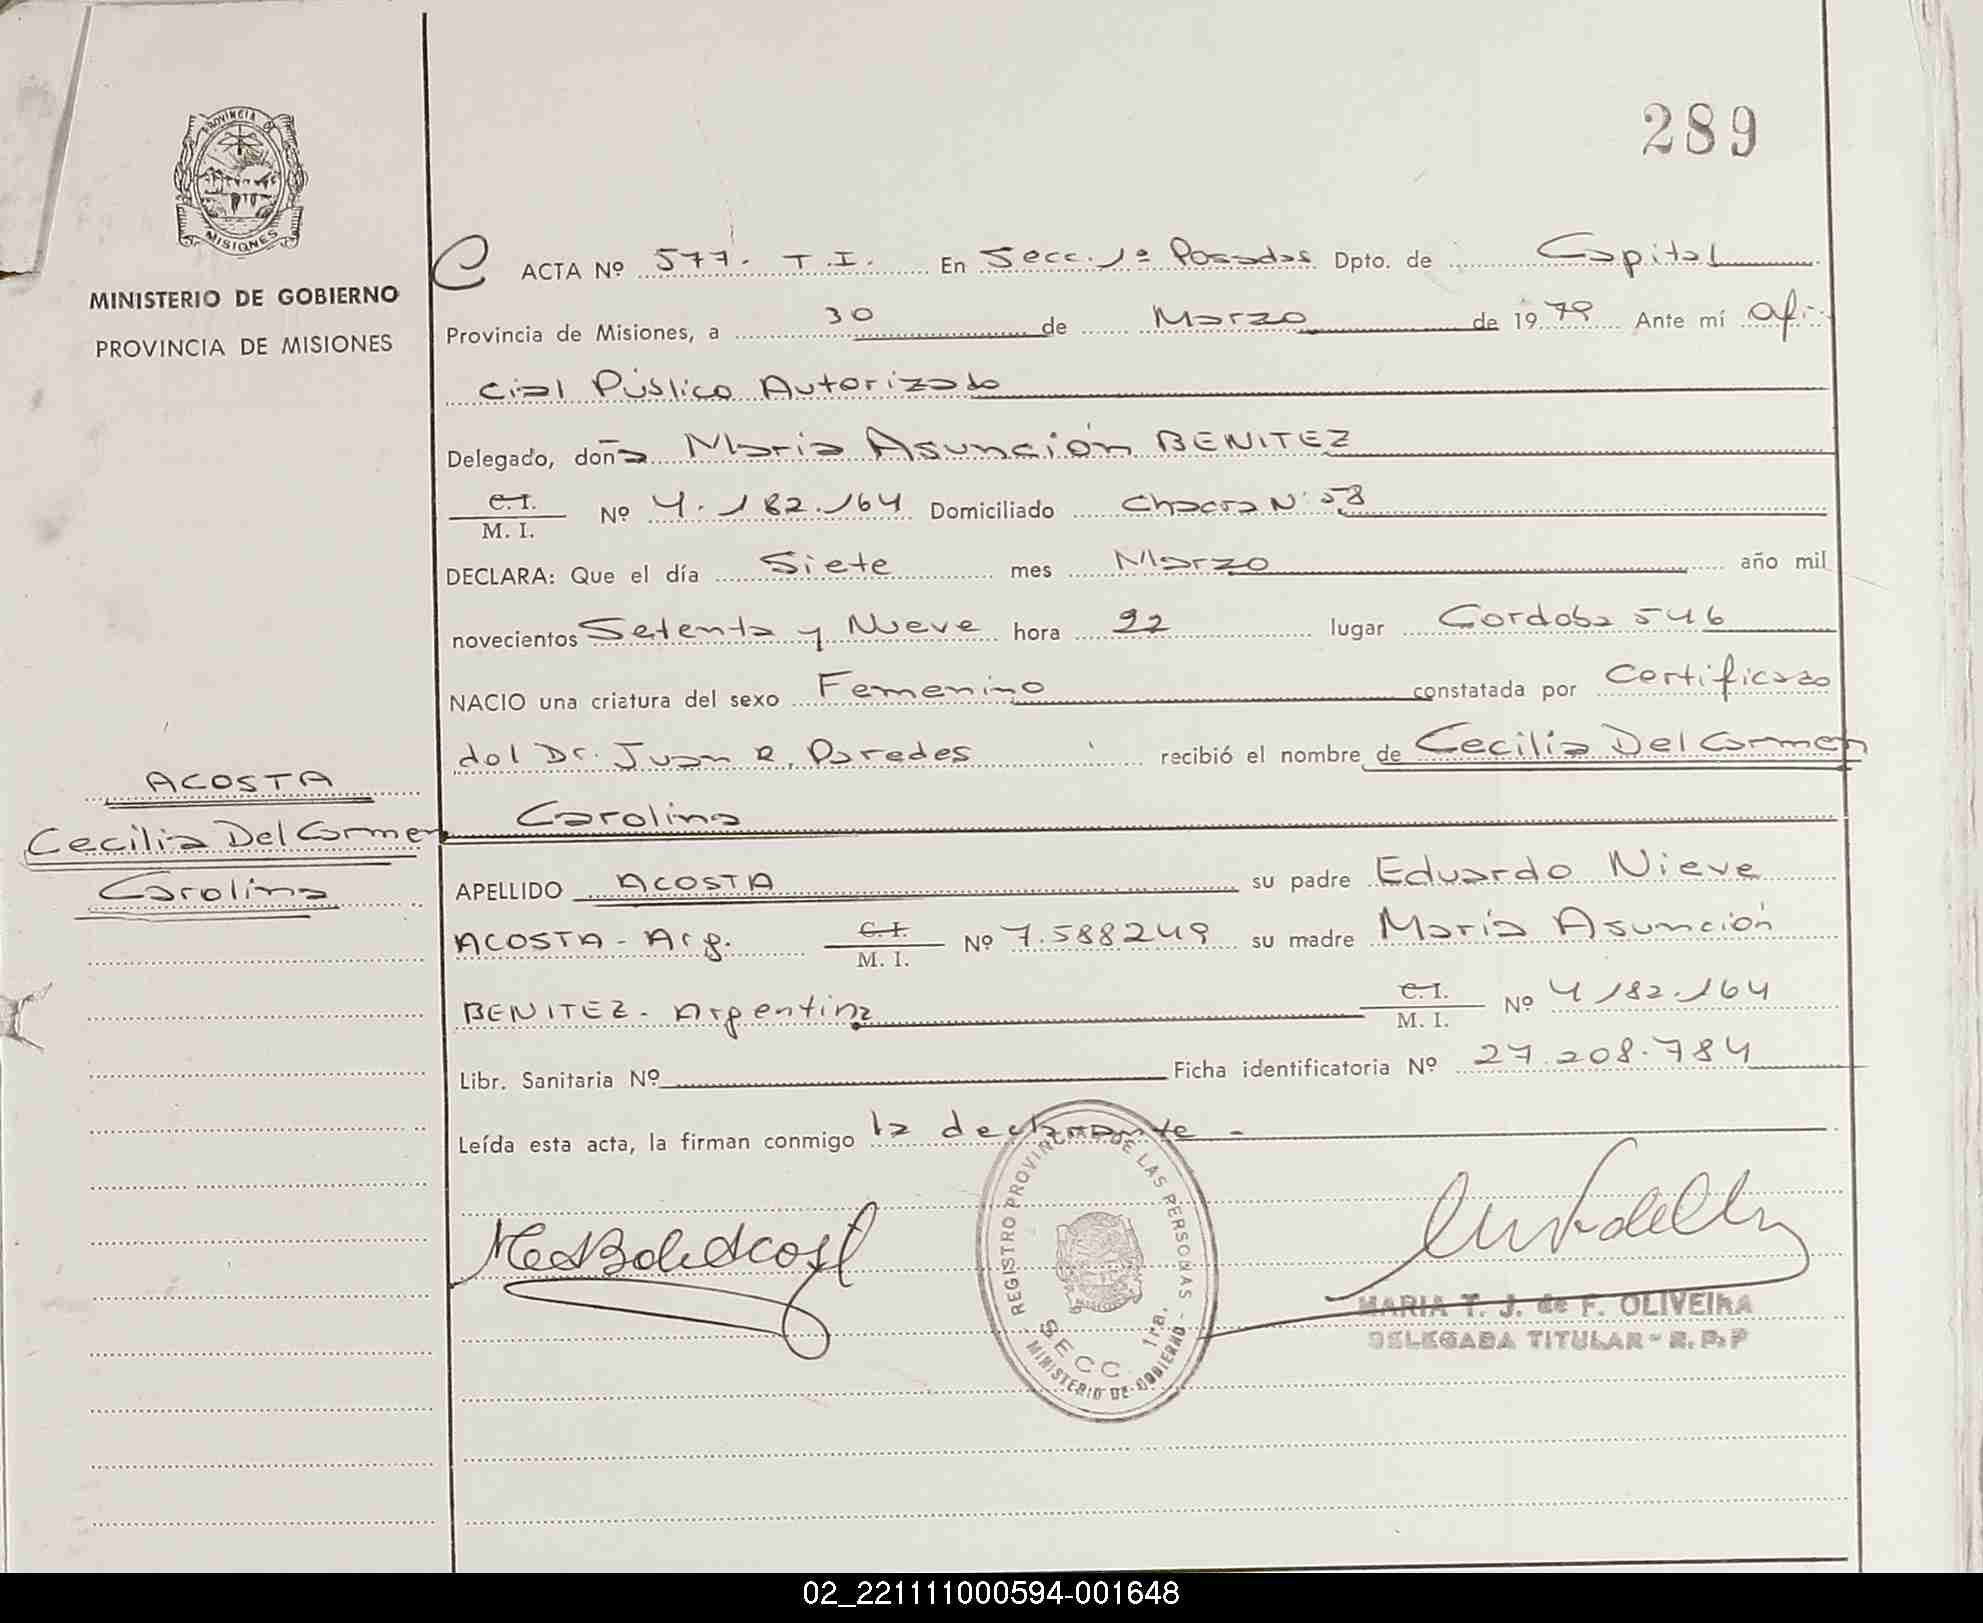 289
PROVINCIA DE
MISIONES
MINISTERIO DE GOBIERNO
PROVINCIA DE MISIONES
ACOSTA
Cecilia Del Carmen
Carolina
ACTA Nº 577. T.I. En Secc. 1ª Posadas Dpto. de Capital
Provincia de Misiones, a 30 de Marzo de 1979 Ante mí Ofi-
cial Público Autorizado
Delegado, doña Maria Asunción BENITEZ
C.I.
M. I. Nº 4.182.164 Domiciliado Chacra Nº 58
DECLARA: Que el día Siete mes Marzo año mil
novecientos Setenta y Nueve hora 22 lugar Cordoba 546
NACIO una criatura del sexo Femenino constatada por Certificado
del Dr. Juan R. Paredes recibió el nombre de Cecilia Del Carmen
Carolina
APELLIDO ACOSTA su padre Eduardo Nieve
ACOSTA - Arg. C.I. M. I. Nº 7.588249 su madre María Asunción
BENITEZ - Argentina C.I. M. I. Nº 4182.164
Libr. Sanitaria Nº Ficha identificatoria Nº 27.208.784
Leída esta acta, la firman conmigo la declarante -
REGISTRO PROVINCIAL DE LAS PERSONAS -
SECC. 1ra.
MINISTERIO DE GOBIERNO
MARIA T. J. de F. OLIVEIRA
DELEGADA TITULAR - R. P. P
02_221111000594-001648